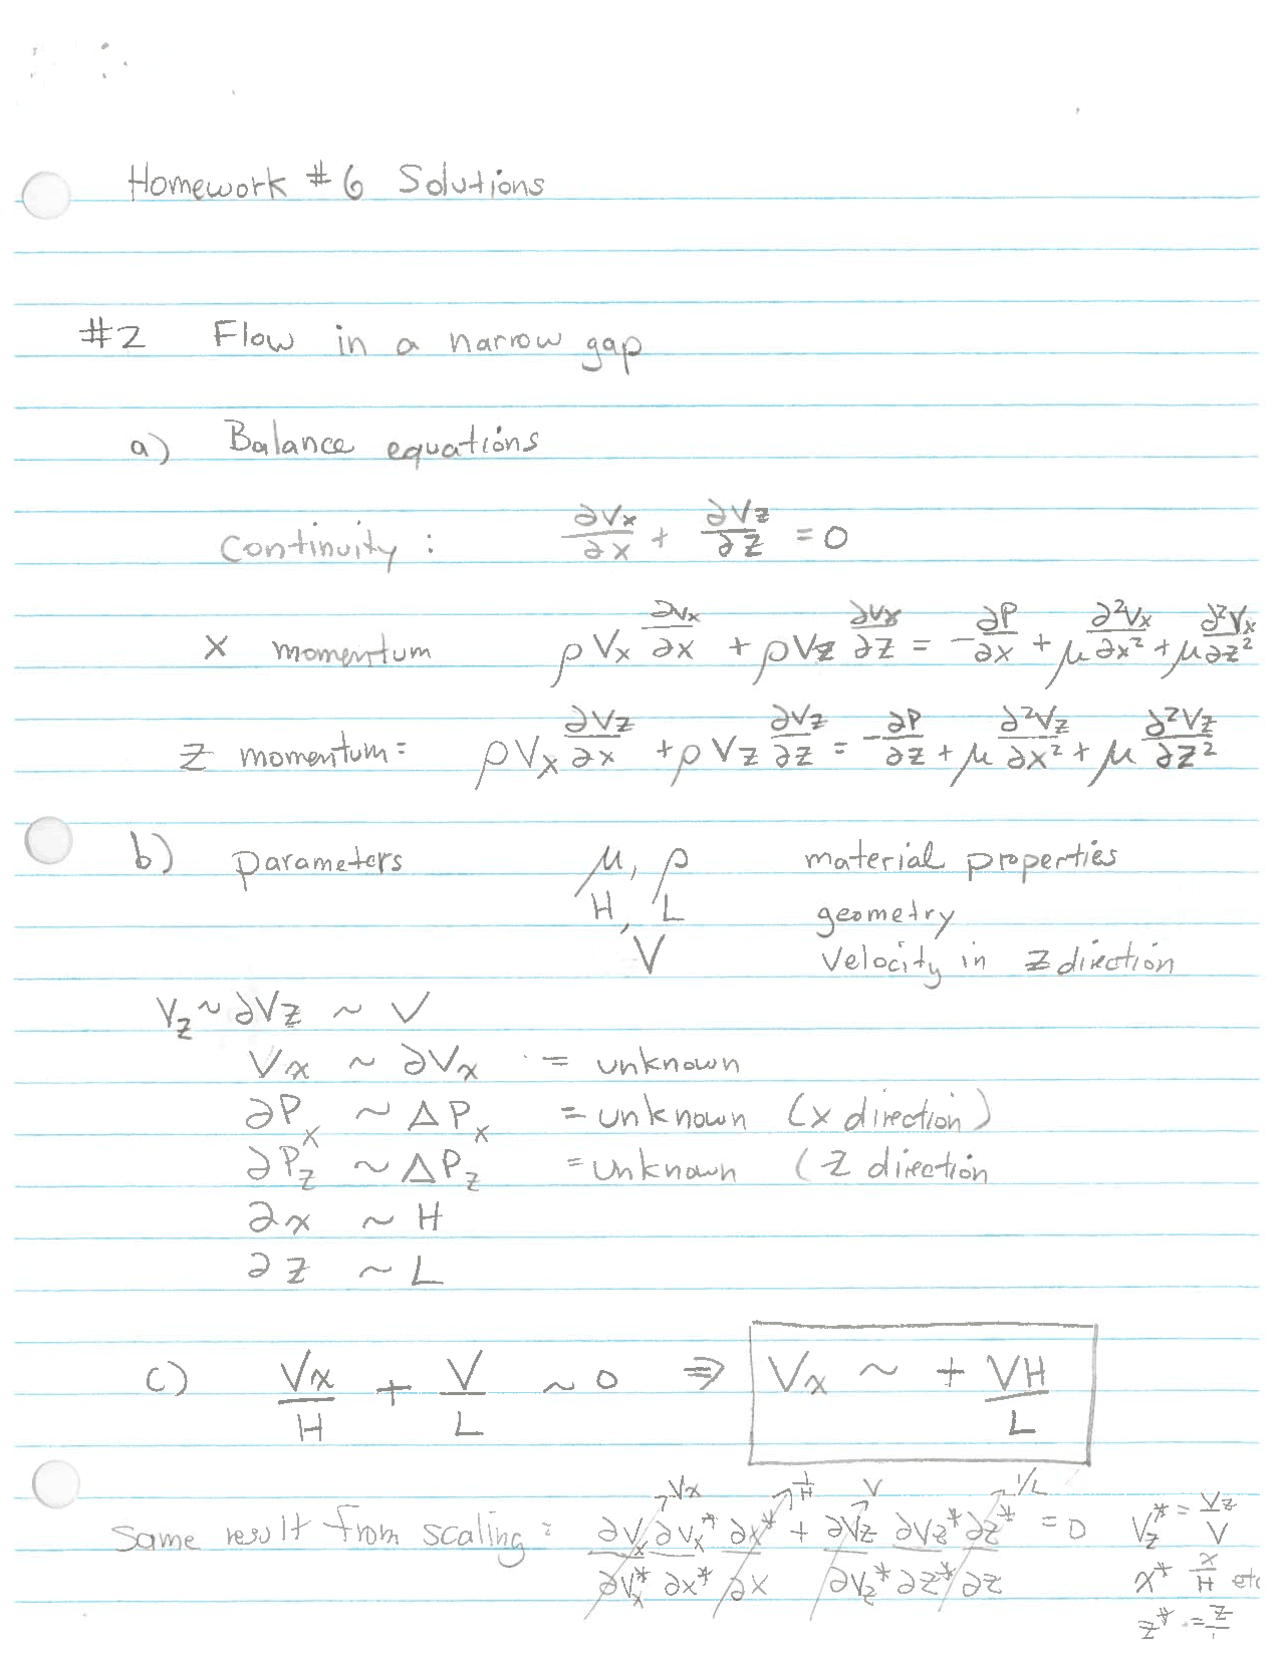 Homework #6 Solutions
#2 Flow in a narrow gap
a) Balance equations
Continuity: ∂Vx/∂x + ∂Vz/∂z = 0
X momentum ρVx ∂Vx/∂x + ρVz ∂Vx/∂z = -∂P/∂x + μ ∂²Vx/∂x² + μ ∂²Vx/∂z²
Z momentum: ρVx ∂Vz/∂x + ρVz ∂Vz/∂z = -∂P/∂z + μ ∂²Vz/∂x² + μ ∂²Vz/∂z²
b) parameters μ, ρ material properties
H, L geometry
V Velocity in z direction
Vz ~ ∂Vz ~ V
Vx ~ ∂Vx = unknown
∂Px ~ ΔPx = unknown (x direction)
∂Pz ~ ΔPz = unknown (z direction
∂x ~ H
∂z ~ L
c) Vx/H + V/L ~ 0 ⇒ Vx ~ + VH/L
Same result from scaling: ∂Vx/∂Vx* ∂Vx*/∂x* ∂x*/∂x + ∂Vz/∂Vz* ∂Vz*/∂z* ∂z*/∂z = 0 Vz* = Vz/V
Vx 1/H V 1/L
x* x/H etc
z* = z/